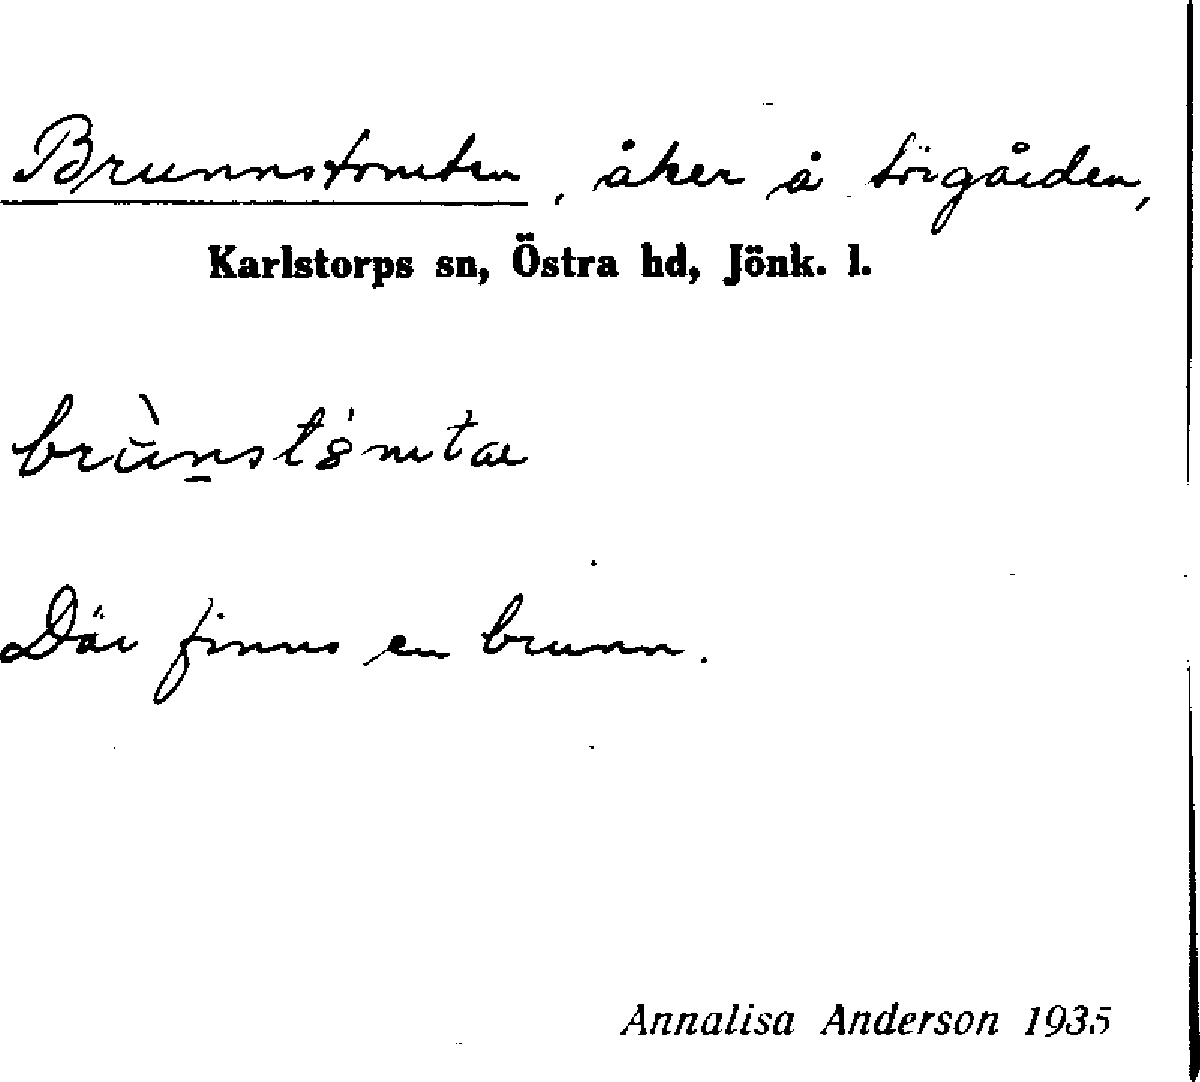 Brunnstomten, åker å Sörgården,
Karlstorps sn, Östra hd, Jönk. l.
Där finns en brunn.
Annalisa Anderson 1935